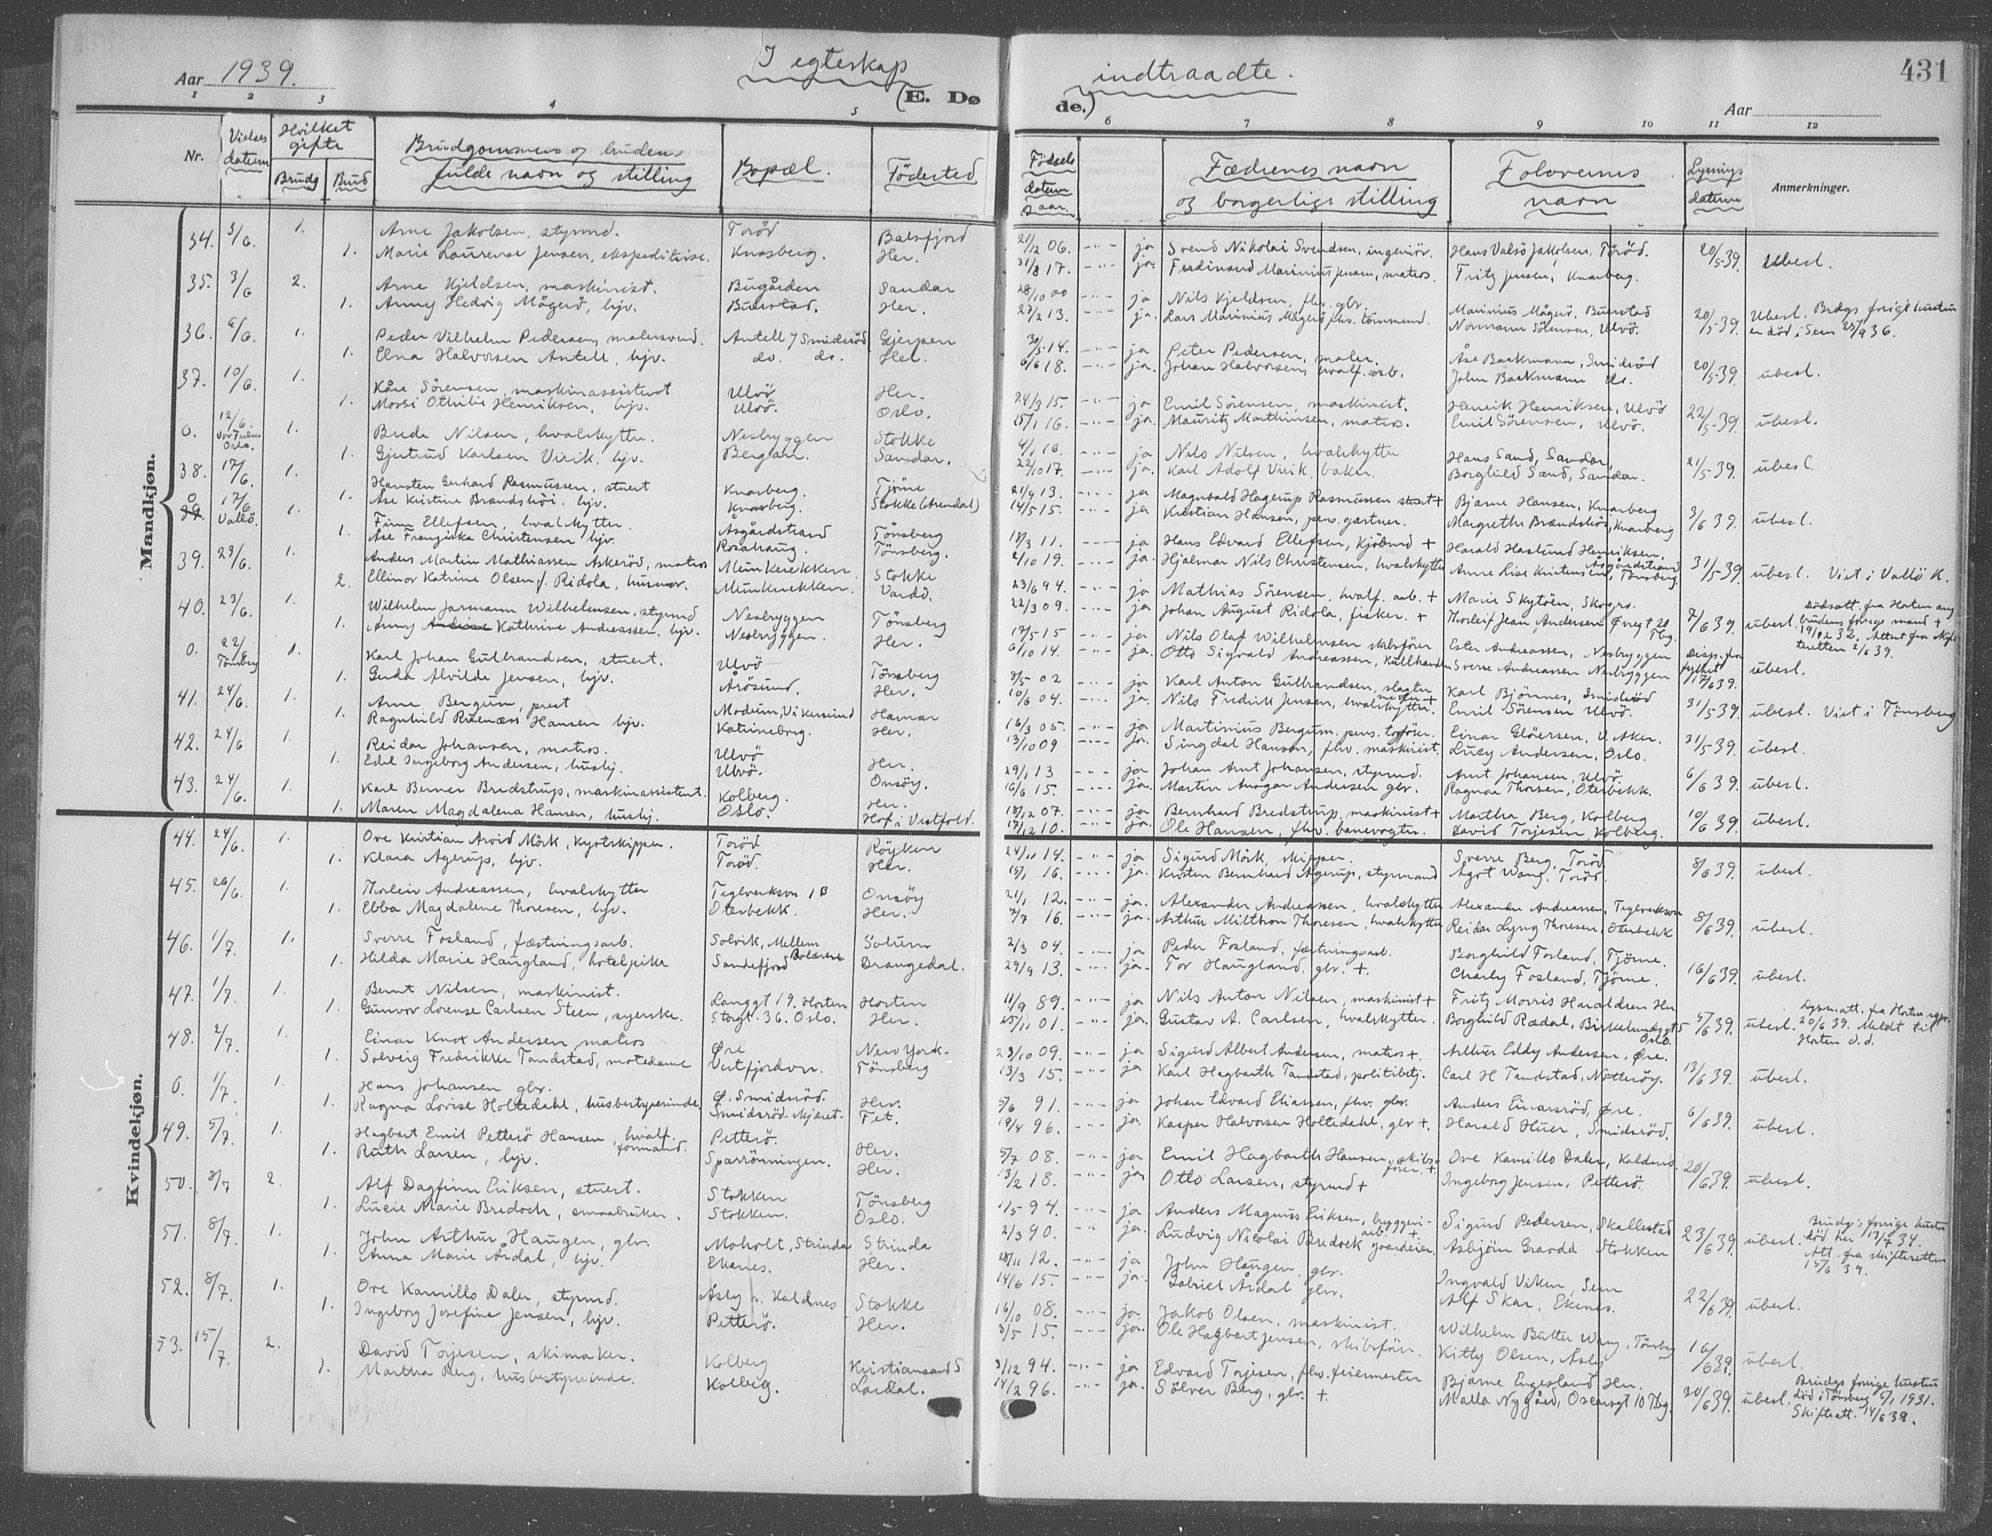 Aar 1939. I egteskap indtraadte. 431
(E. Døde.) Aar
1 2 3 4 5 6 7 8 9 10 11 12
Nr. Vielses datum Hvilket gifte Brudg Brud Brudgommens og brudens fulde navn og stilling Bopæl. Födested
Fødsels datum & aar. Fædrenes navn og borgerlige stilling Forlovernes navn Lysnings datum Anmerkninger.
Mandkjøn.
34. 3/6. 1. Arne Jakobsen, styrmd. Torød Balsfjord 21/12 06. ja Svend Nikolai Svendsen, ingeniör. Hans Valsö Jakobsen, Torød. 20/5-39. ubesl.
1. Marie Laurense Jensen, ekspeditrise. Knarberg. Her. 31/8 17. ja. Ferdinand Marinius Jensen, matros. Fritz Jensen, Knarberg.
35. 3/6 2. Arne Kjeldsen, maskinist. Bugården Sandar 28/10 00 ja Nils Kjeldsen, fhv. gbr. Marinius Mågerö, Buerstad 20/5-39. Ubesl. Brudgs forige hustru
1. Anny Hedvig Mågerö, hjv. Buerstad. Her. 27/2 13. ja. Lars Marinius Mågerö fhv. tömmermd. Normann Sörensen, Ulvö. er död i Sem 23/9 36.
36. 6/6. 1. Peder Vilhelm Pedersen, malersvend. Antell, Smidsröd Gjerpen 30/5-14. ja Peter Pedersen, maler. Åse Backmann, Smidsröd 20/5-39. ubesl.
1. Elna Halvorsen Antell, hjv. do. do. Her. 6/6 18. ja. Johan Halvorsen, hvalf. arb. John Backmann do.
37. 10/6. 1. Kåre Sörensen, maskinassistent Ulvö Her. 24/3 15. ja Emil Sörensen, maskinist. Henrik Henriksen, Ulvö 22/5-39. ubesl.
1. Mossi Othilie Henriksen, hjv. Ulvö. Oslo. 15/1 16. ja. Mauritz Mathinsen, matros. Emil Sörensen, Ulvö.
0. 12/6. Vor Frelser Oslo. 1. Brede Nilsen, hvalskytter. Nesbryggen Stokke 4/1 16. ja Nils Nilsen, hvalskytter Hans Sand, Sandar, 21/5-39. ubesl.
1. Gjertrud Karlsen Virik, hjv. Bergan. Sandar. 22/10 17. ja. Karl Adolf Virik, baker. Borghild Sand, Sandar.
38. 17/6 1. Karsten Gerhard Rasmussen, stuert Knarberg. Tjöme 21/9 13. ja Magnvald Hagerup Rasmussen stuert + Bjarne Hansen, Knarberg 3/6 39. ubesl.
1. Åse Kristine Brandshöi, hjv. Knarberg. Stokke (Arendal) 14/5 15. ja Kristian Hansen, pens. gartner. Margrethe Brandshöi, Knarberg
0 17/6 Vallö. 1. Finn Ellefsen, hvalskytter. Åsgårdstrand Tönsberg 18/3 11. ja Hans Edvard Ellefsen, Kjöbmd + Harald Haslund Henriksen, Åsgårdstrand 31/5-39. ubesl. Viet i Vallö K.
1. Åse Franziska Christensen hjv. Rosahaug. Tönsberg. 2/10 19. ja. Hjalmar Nils Christensen, hvalskytter Anne Lise Kristensen, Tönsberg
39. 23/6. 1. Anders Martin Mathiassen Askeröd, matros Munkerekken Stokke 23/6 94. ja Mathias Sörensen, hvalf. arb. + Marie Skytöen, Skogro. 7/6 39. ubesl. Dödsatt. fra Horten ang
2. Ellinor Katrine Olsen f. Ridola, husmor. Munkerekken. Vardö. 22/3 09. ja Johan August Ridola, fisker. + Thorleif Jean Andersen Øvregt 20 Tbg. brudens forige mand + 19/12 32. Attest fra skifteretten 2/6 39.
40. 23/6. 1. Wilhelm Jarmann Wilhelmsen, styrmd Nesbryggen Tönsberg 17/5 15. ja Nils Olaf Wilhelmsen skibsförer Ester Andreassen, Nesbryggen Disp. fra fylket 17/6 39. ubesl.
1. Anny Kathrine Andreassen, hjv. Nesbryggen. Her. 6/10 14. ja. Otto Sigvald Andreassen, Kullhandler Sverre Andreassen Nesbryggen
0. 22/6 Tönsberg 1. Karl Johan Gulbrandsen, stuert. Ulvö Tönsberg 3/5- 02 ja Karl Anton Gulbrandsen, slagter Karl Bjönnes, Smidsröd 31/5-39. ubesl. Viet i Tönsberg
1. Guda Alvilde Jensen, hjv. Årösund. Her. 10/6 04. ja. Nils Fredrik Jensen, hvalskytter. Emil Sörensen Ulvö.
41. 24/6. 1. Arne Bergum, prest Modum, Vikersund Hamar 16/3 05. ja Martinius Bergum, pens. togförer. Einar Glöersen, V. Aker. 31/5-39. ubesl.
1. Ragnhild Ramnæss Hansen hjv. Katrineborg. Her. 13/10 09 ja. Singdal Hansen, fhv. maskinist. Lucy Andersen, Oslo.
42. 24/6 1. Reidar Johansen, matros. Ulvö Her. 29/1 13 ja Johan Arnt Johansen, styrmd. Arnt Johansen, Ulvö. 6/6 39. ubesl.
1. Edel Ingeborg Andersen, hushj. Ulvö. Onsöy. 16/6 15. ja. Martin Ansgar Andersen gbr. Ragnar Thoresen, Oterbekk.
43. 24/6. 1. Karl Berner Bredstrup, maskinassistent. Kolberg. Her. 18/12 07. ja Bernhard Bredstrup, maskinist + Martha Berg, Kolberg 10/6 39. ubesl.
1. Maren Magdalena Hansen, hushj. Oslo. Hof i Vestfold. 17/12 10. ja. Ole Hansen, fhv. banevogter. David Torjesen Kolberg.
Kvindekjøn.
44. 24/6. 1. Ove Kristian Arvid Mörk, kystskipper. Torød Röyken 24/11 14. ja Sigurd Mörk, skipper. Sverre Berg, Torød 8/6 39. ubesl.
1. Klara Agerup, hjv. Torød. Her. 15/1 16. ja. Kristen Bernhard Agerup, styrmand Agot Wang, Torød.
45. 26/6. 1. Thorleiv Andreassen, hvalskytter Teglverksvn 1B Onsöy 21/1 12. ja. Alexander Andreassen, hvalskytter Alexander Andreassen, Teglverksvn 8/6 39. ubesl.
1. Ebba Magdalene Thoresen, hjv. Oterbekk. Her. 7/7 16. ja. Arthur Milthon Thoresen, hvalskytter Reidar Lyng Thoresen, Oterbekk
46. 1/7. 1. Sverre Fosland, fæstningsarb. Solvik, Mellem Bolærene Solum 2/3 04. ja Peder Fosland, fæstningsarb. Borghild Fosland, Tjöme. 16/6 39. ubesl.
1. Hilda Marie Haugland, hotelpike Sandefjord Drangedal. 29/9 13. ja. Tor Haugland, gbr. +. Charly Fosland, Tjöme.
47. 1/7. 1. Bernt Nilsen, maskinist. Langgt 19. Horten Horten 11/9 89. ja Nils Anton Nilsen, maskinist + Fritz Morris Haraldsen Her 5/6 39. ubesl. Lysn.att. fra Horten sgpr.
1. Gunvor Lorense Carlsen Steen, syerske. Storgt. 36. Oslo. Her. 25/11 01. ja. Gustav A. Carlsen, hvalskytter. Borghild Rædal, Birkelundsgt 5 Oslo. 20/6 39. Meldt til Horten s.d.
48. 2/7. 1. Einar Knox Andersen, matros Øre New York. 23/10 09. ja Sigurd Albert Andersen, matros +. Arthur Eddy Andersen, Øre. 13/6 39. ubesl.
1. Solveig Fredrikke Tandstad, motedame Vestfjordvn. Tönsberg 13/3 15. ja Karl Hagbarth Tandstad, politibetj. Carl H Tandstad, Nötteröy.
0. 1/7. 1. Hans Johansen gbr. Ø. Smidsröd. Her. 5/6 91. ja Johan Edvard Eliassen, fhv. gbr. Anders Einarsröd, Øre. 6/6 39. ubesl.
1. Ragna Lovise Holtedahl, husbestyrerinde Smidsröd-Kjæret. Fet. 19/4 96. ja. Kasper Halvorsen Holtedahl, gbr +. Harald Huer, Smidsröd.
49. 5/7. 1. Hagbart Emil Petterö Hansen, hvalf. formand. Petterö. Her. 5/7 08. ja Emil Hagbarth Hansen, skibsförer. + Ove Kamillo Daler, Kaldnes 20/6 39. ubesl.
1. Ruth Larsen, hjv. Sparrönningen. Her. 13/2 18. ja Otto Larsen, styrmd + Ingeborg Jensen, Petterö.
50. 8/7 2. Alf Dagfinn Eriksen, stuert. Stokken Tönsberg 11/5 94. ja Anders Magnus Eriksen, bryggeriarb. + Sigurd Pedersen, Skallestad 23/6 39. ubesl. Brudg's forige hustru
1. Lucie Marie Bredoch, småbruker. Stokken. Oslo. 2/3 90. ja. Ludvig Nicolai Bredock gårdeier. Asbjörn Gravdal Stokken död her 17/7 34. Att. fra skifteretten 15/6 39.
51. 8/7. 1. John Arthur Haugen, gbr. Moholt, Strinda Strinda 28/11 12. ja John Haugen, gbr. Ingvald Viken, Sem 22/6 39. ubesl.
1. Anna Marie Årdal, hjv. Ekenes. Her. 14/6 15. ja. Gabriel Årdal gbr. Alf Skar, Ekenes.
52. 8/7. 1. Ove Kamillo Daler, styrmd. Åsly v. Kaldnes Stokke 16/10 08. ja. Jakob Olsen, maskinist. Wilhelm Butter Wang, Tönsberg 16/6 39. ubesl.
1. Ingeborg Josefine Jensen, hjv. Petterö. Her. 3/5 15. ja. Ole Hagbart Jensen, skibsförer. Kitty Olsen, Åsly
53. 15/7. 2. David Torjesen, skimaker. Kolberg Kristiansand S 3/12 94. ja Edvard Torjesen, fhv. feiermester Bjarne Engesland Her. 20/6 39. ubesl. Brudgs forige hustru
1. Martha Berg, husbestyrerinde. Kolberg. Lardal. 14/2 96. ja. Sölver Berg, gbr. + Malla Nygård, Oscarsgt 10 Tbg. död i Tönsberg 5/1 1931. Skifteatt. 14/6 39.